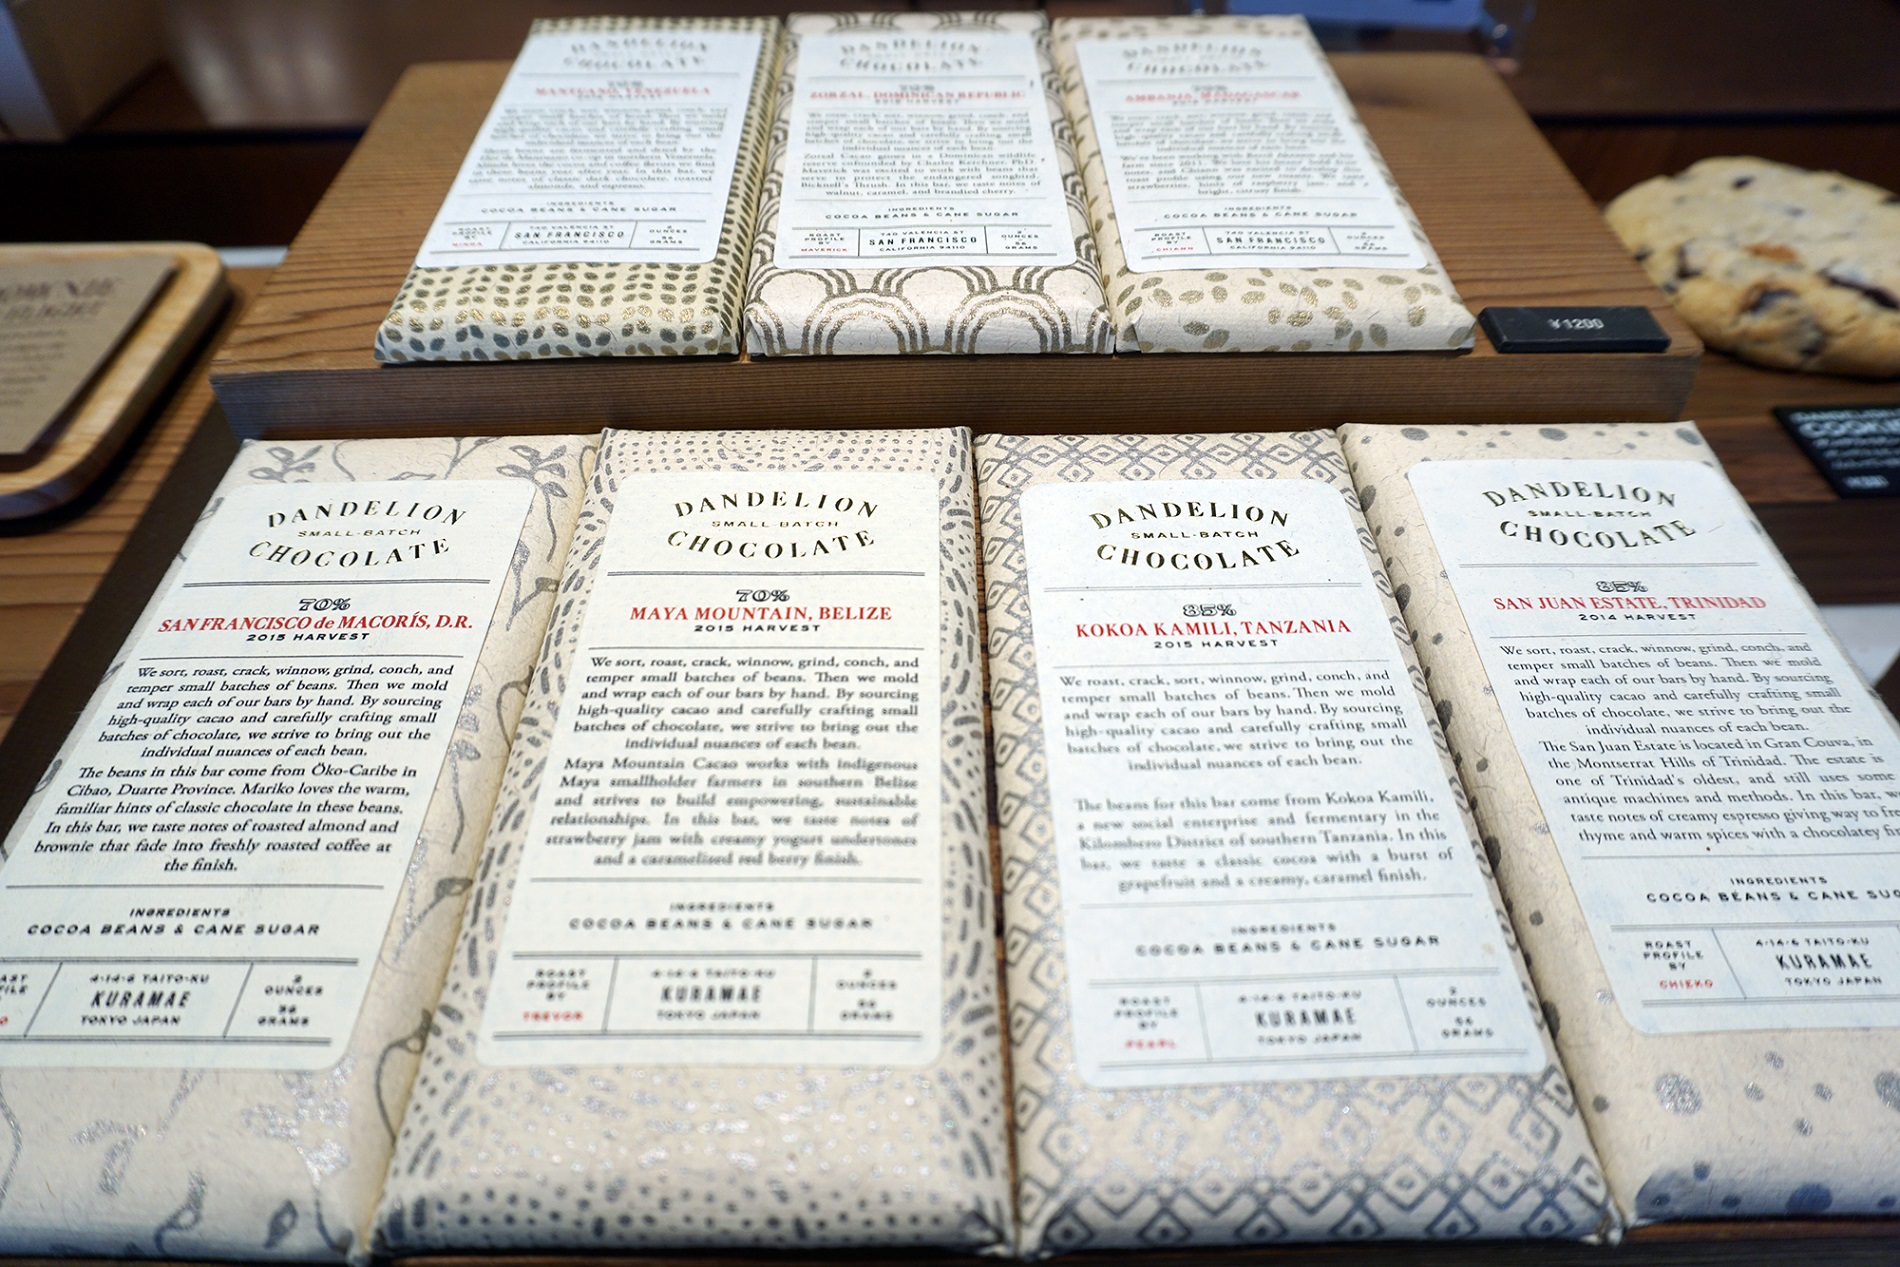 DANDELION
CHOCOLATE
70%
MANTUANO, VENEZUELA
HARVEST
individual nuances of each bean.
taste notes of classic dark chocolate, roasted
almonds, and espresso.
INGREDIENTS
COCOA BEANS & CANE SUGAR
ROAST
PROFILE
BY
740 VALENCIA ST
SAN FRANCISCO
CALIFORNIA 94110
2
OUNCES
56
GRAMS
DANDELION
CHOCOLATE
70%
ZORZAL, DOMINICAN REPUBLIC
2015 HARVEST
We roast, crack, sort, winnow, grind, conch, and
temper small batches of beans. Then we mold
and wrap each of our bars by hand. By sourcing
high-quality cacao and carefully crafting small
batches of chocolate, we strive to bring out the
individual nuances of each bean.
Zorzal Cacao grows in a Dominican wildlife
reserve cofounded by Charles Kerchner, Ph.D.
Maverick was excited to work with beans that
serve to protect the endangered songbird,
Bicknell's Thrush. In this bar, we taste notes of
walnut, caramel, and brandied cherry.
INGREDIENTS
COCOA BEANS & CANE SUGAR
ROAST
PROFILE
BY
MAVERICK
740 VALENCIA ST
SAN FRANCISCO
CALIFORNIA 94110
2
OUNCES
56
GRAMS
DANDELION
CHOCOLATE
70%
AMBANJA, MADAGASCAR
HARVEST
individual nuances of each bean.
strawberries, hints of raspberry jam, and a
bright, citrusy finish.
INGREDIENTS
COCOA BEANS & CANE SUGAR
ROAST
PROFILE
BY
CHIANN
740 VALENCIA ST
SAN FRANCISCO
CALIFORNIA 94110
2
OUNCES
56
GRAMS
¥1200
DANDELION
SMALL-BATCH
CHOCOLATE
70%
SAN FRANCISCO de MACORÍS, D.R.
2015 HARVEST
We sort, roast, crack, winnow, grind, conch, and
temper small batches of beans. Then we mold
and wrap each of our bars by hand. By sourcing
high-quality cacao and carefully crafting small
batches of chocolate, we strive to bring out the
individual nuances of each bean.
The beans in this bar come from Öko-Caribe in
Cibao, Duarte Province. Mariko loves the warm,
familiar hints of classic chocolate in these beans.
In this bar, we taste notes of toasted almond and
brownie that fade into freshly roasted coffee at
the finish.
INGREDIENTS
COCOA BEANS & CANE SUGAR
4-14-6 TAITO-KU
KURAMAE
TOKYO JAPAN
2
OUNCES
56
GRAMS
DANDELION
SMALL-BATCH
CHOCOLATE
70%
MAYA MOUNTAIN, BELIZE
2015 HARVEST
We sort, roast, crack, winnow, grind, conch, and
temper small batches of beans. Then we mold
and wrap each of our bars by hand. By sourcing
high-quality cacao and carefully crafting small
batches of chocolate, we strive to bring out the
individual nuances of each bean.
Maya Mountain Cacao works with indigenous
Maya smallholder farmers in southern Belize
and strives to build empowering, sustainable
relationships. In this bar, we taste notes of
strawberry jam with creamy yogurt undertones
and a caramelized red berry finish.
INGREDIENTS
COCOA BEANS & CANE SUGAR
ROAST
PROFILE
BY
TREVOR
4-14-6 TAITO-KU
KURAMAE
TOKYO JAPAN
2
OUNCES
56
GRAMS
DANDELION
SMALL-BATCH
CHOCOLATE
85%
KOKOA KAMILI, TANZANIA
2015 HARVEST
We roast, crack, sort, winnow, grind, conch, and
temper small batches of beans. Then we mold
and wrap each of our bars by hand. By sourcing
high-quality cacao and carefully crafting small
batches of chocolate, we strive to bring out the
individual nuances of each bean.
The beans for this bar come from Kokoa Kamili,
a new social enterprise and fermentary in the
Kilombero District of southern Tanzania. In this
bar, we taste a classic cocoa with a burst of
grapefruit and a creamy, caramel finish.
INGREDIENTS
COCOA BEANS & CANE SUGAR
ROAST
PROFILE
BY
PEARL
4-14-6 TAITO-KU
KURAMAE
TOKYO JAPAN
2
OUNCES
56
GRAMS
DANDELION
SMALL-BATCH
CHOCOLATE
85%
SAN JUAN ESTATE, TRINIDAD
2014 HARVEST
We sort, roast, crack, winnow, grind, conch, and
temper small batches of beans. Then we mold
and wrap each of our bars by hand. By sourcing
high-quality cacao and carefully crafting small
batches of chocolate, we strive to bring out the
individual nuances of each bean.
The San Juan Estate is located in Gran Couva, in
the Montserrat Hills of Trinidad. The estate is
one of Trinidad's oldest, and still uses some
antique machines and methods. In this bar, we
taste notes of creamy espresso giving way to
thyme and warm spices with a chocolatey
INGREDIENTS
COCOA BEANS & CANE
ROAST
PROFILE
BY
CHIEKO
4-14-6 TAITO-KU
KURAMAE
TOKYO JAPAN